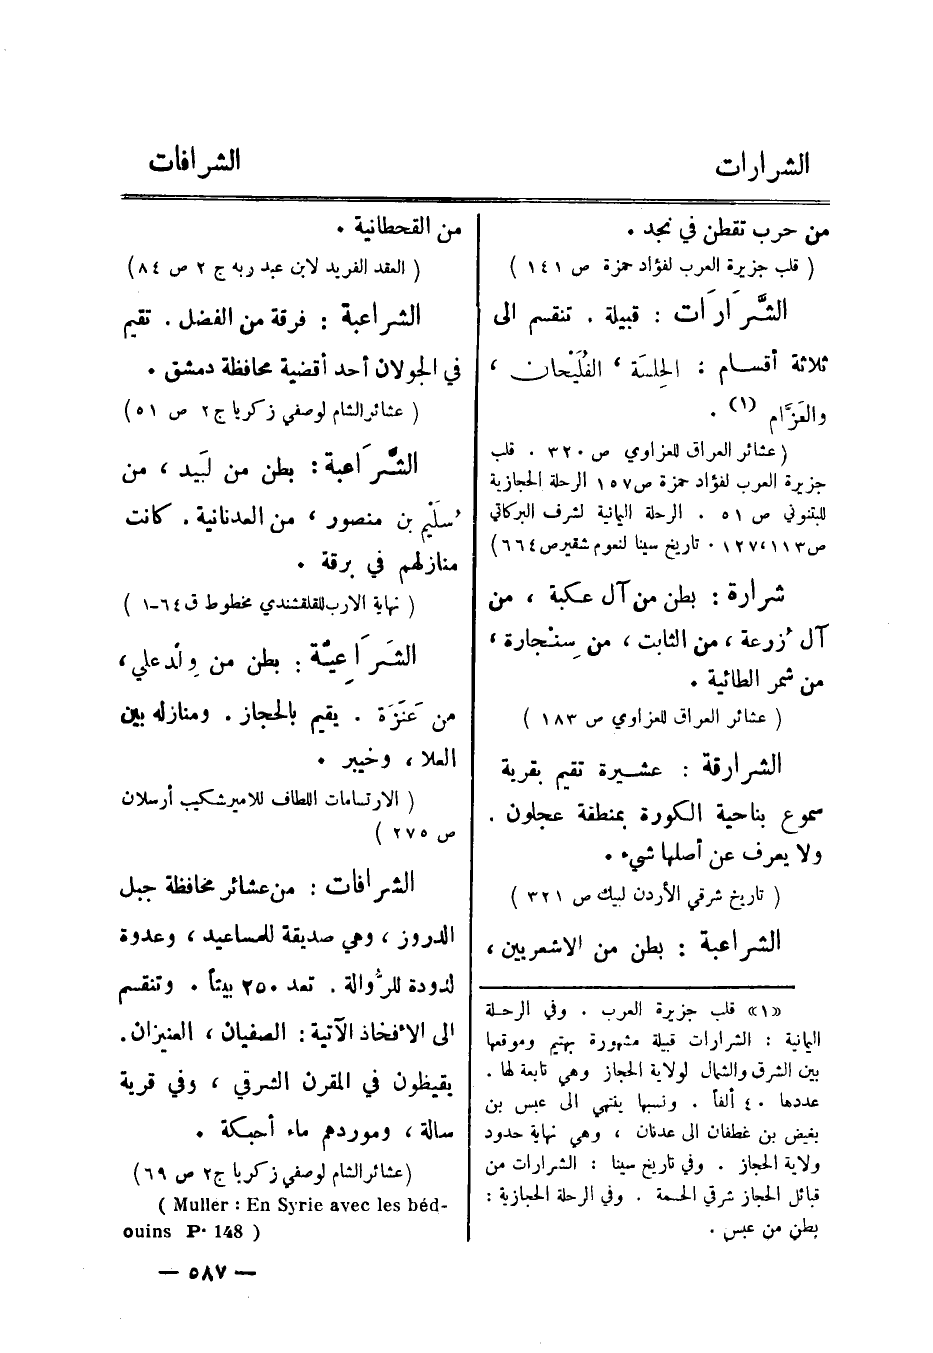 الشرارات
الشرافات
من حرب تقطن في نجد .
( قلب جزيرة العرب لفؤاد حمزة ص ١٤١ )
الشَّرَارَات : قبيلة . تنقسم الى
ثلاثة أقسام : الحِلسَة ، الفُلَيْحان ،
والعَزَّام (١) .
( عشائر العراق للعزاوي ص ٣٢٠ . قلب
جزيرة العرب لفؤاد حمزة ص ١٥٧ الرحلة الحجازية
للبتنوني ص ٥١ . الرحلة اليمانية لشرف البركاتي
ص ١١٣ ، ١٢٧ . تاريخ سينا لنعوم شقير ص ٦٦٤ )
شرارة : بطن من آل عكبة ، من
آل زُرعة ، من الثابت ، من سِنْجارة ،
من شمر الطائية .
( عشائر العراق للعزاوي ص ١٨٣ )
الشرارقة : عشيرة تقيم بقرية
سموع بناحية الكورة بمنطقة عجلون .
ولا يعرف عن أصلها شيء .
( تاريخ شرقي الأردن لبيك ص ٣٢١ )
الشراعبة : بطن من الاشعريين ،
«١» قلب جزيرة العرب . وفي الرحلة
اليمانية : الشرارات قبيلة مشهورة بهتيم وموقعها
بين الشرق والشمال لولاية الحجاز وهي تابعة لها .
عددها ٤٠ ألفاً . ونسبها ينتهي الى عبس بن
بغيض بن غطفان الى عدنان ، وهي نهاية حدود
ولاية الحجاز . وفي تاريخ سينا : الشرارات من
قبائل الحجاز شرقي الحسمة . وفي الرحلة الحجازية :
بطن من عبس .
من القحطانية .
( العقد الفريد لابن عبد ربه ج ٢ ص ٨٤ )
الشراعبة : فرقة من الفضل . تقيم
في الجولان أحد أقضية محافظة دمشق .
( عشائر الشام لوصفي زكريا ج ٢ ص ٥١ )
الشَّرَاعبة : بطن من لَبيد ، من
سُلَيْم بن منصور ، من العدنانية . كانت
منازلهم في برقة .
( نهاية الارب للقلقشندي مخطوط ق ٦٤-١ )
الشَرَاعِيَّة : بطن من وِلْد علي ،
من عَنَزَة . يقيم بالحجاز . ومنازله بين
العلا ، وخيبر .
( الارتسامات اللطاف للامير شكيب أرسلان
ص ٢٧٥ )
الشرافات : من عشائر محافظة جبل
الدروز ، وهي صديقة للمساعيد ، وعدوة
لدودة للرُّوالة . تعد ٢٥٠ بيتاً . وتنقسم
الى الأفخاذ الآتية : الصفيان ، العنيزان .
يقيظون في المقرن الشرقي ، وفي قرية
سالة ، وموردهم ماء أحبكة .
( عشائر الشام لوصفي زكريا ج ٢ ص ٦٩ )
( Muller : En Syrie avec les béd-
ouins P. 148 )
— ٥٨٧ —